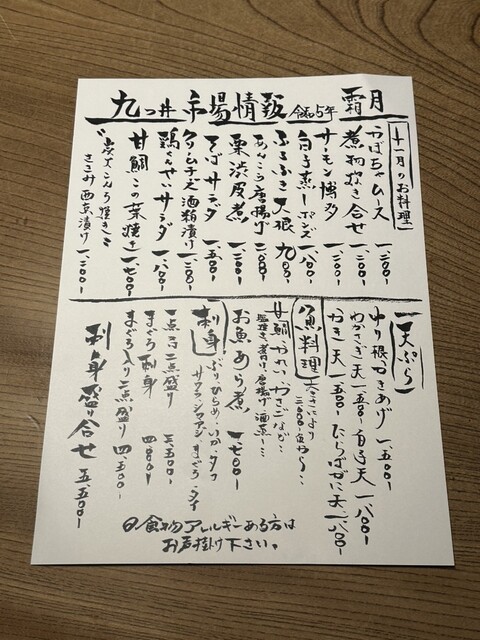 九つ井 市場情報 令和5年 霜月
十一月のお料理
かぼちゃムース 一、二〇〇-
煮物炊き合せ 一、二〇〇-
サーモン博多 一、二〇〇-
白子蒸しポンズ 一、八〇〇-
ふろふき大根 九〇〇-
あんこう唐揚げ 二、〇〇〇-
栗渋皮煮 一、二〇〇-
そばサラダ 一、五〇〇-
クリームチーズ酒粕漬け 一、二〇〇-
鶏くんせいサラダ 一、八〇〇-
甘鯛この葉焼き 一、七〇〇-
ささみ西京漬け 一、二〇〇-
天ぷら
ゆり根かきあげ 一、五〇〇-
わかさぎ天 一、五〇〇- 白子天 一、八〇〇-
かき天 一、五〇〇- たらばがに天 一、八〇〇-
魚料理 大きさにより
甘鯛、かれい、かさごなど…
塩焼き、煮付、唐揚げ、酒蒸し…
お魚あら煮 一、七〇〇-
刺身 ぶり、ひらめ、いか、タコ
サワラ、シマアジ、まぐろ、タイ
一点 二点盛り 三、五〇〇-
まぐろ刺身 四、〇〇〇-
まぐろ入り二点盛り 四、五〇〇-
刺身盛り合せ 五、五〇〇-
食物アレルギーある方は
お声掛け下さい。